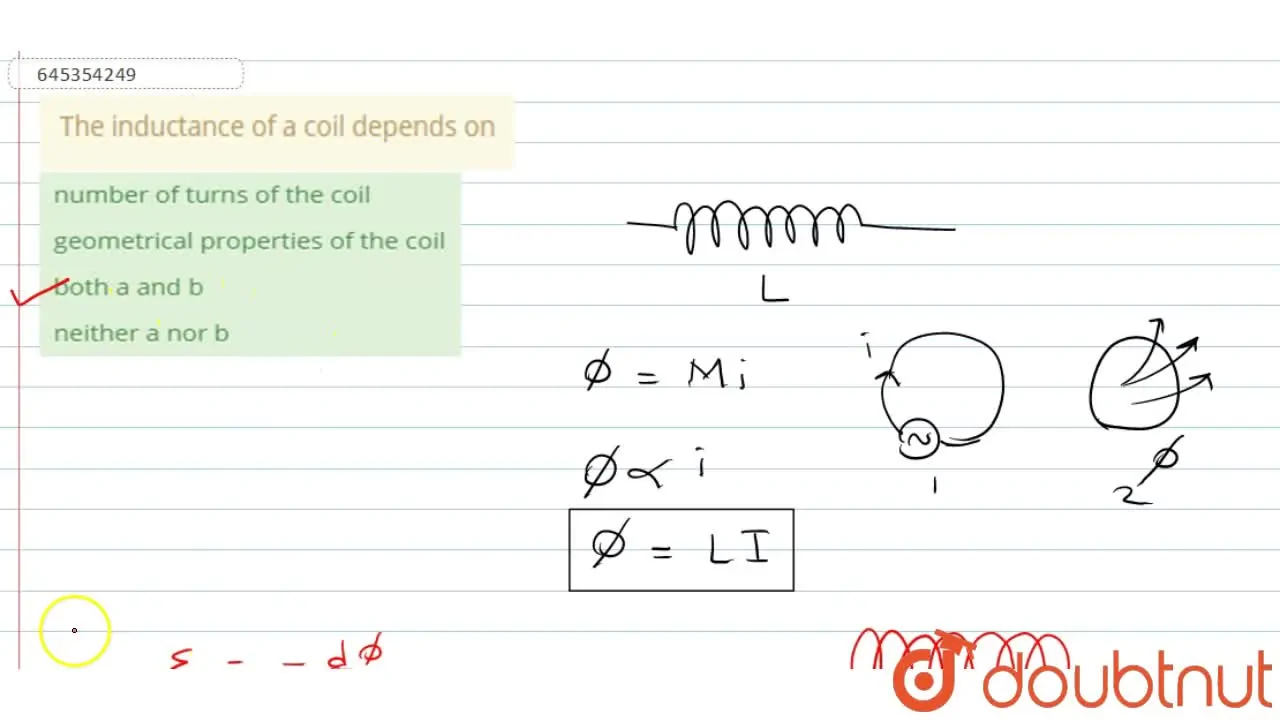 645354249
The inductance of a coil depends on
number of turns of the coil
geometrical properties of the coil
both a and b
neither a nor b
L
ϕ = Mi
i
1
ϕ
2
ϕ ∝ i
ϕ = LI
- - dϕ
doubtnut